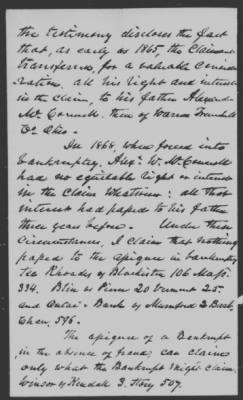 the testimony discloses the fact
that, as early as 1865, the Claimant
transferred, for a valuable conside-
ration, all his right and interest
in the claim, to his father Alexander
McConnell, then of Warren Trumbull
Co Ohio.
In 1868, when forced into
bankruptcy, Alex. W. McConnell
had no equitable right or interest
in the claim whatever; all that
interest had passed to his father
three years before. Under these
circumstances, I claim that nothing
passed to the assignee in bankruptcy
See Rhoades v Blackiston 106 Mass.
334. Blin v Pierce 20 Vermont 25.
and Ontario Bank v Mumford 2 Barb.
Chan. 596.
The assignee of a Bankrupt
in the absence of fraud, can claim
only what the Bankrupt might claim.
Winsor v Kendall 3 Story 507.